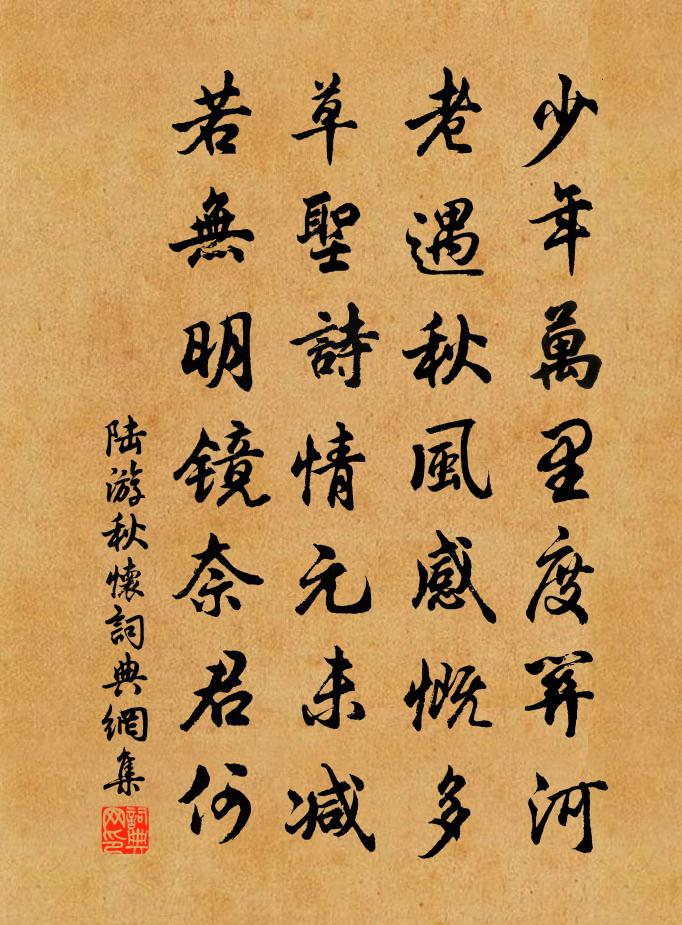 少年萬里度關河
老遇秋風感慨多
草聖詩情元未減
若無明镜奈君何
陆游秋懷詞典網集
詞典网印